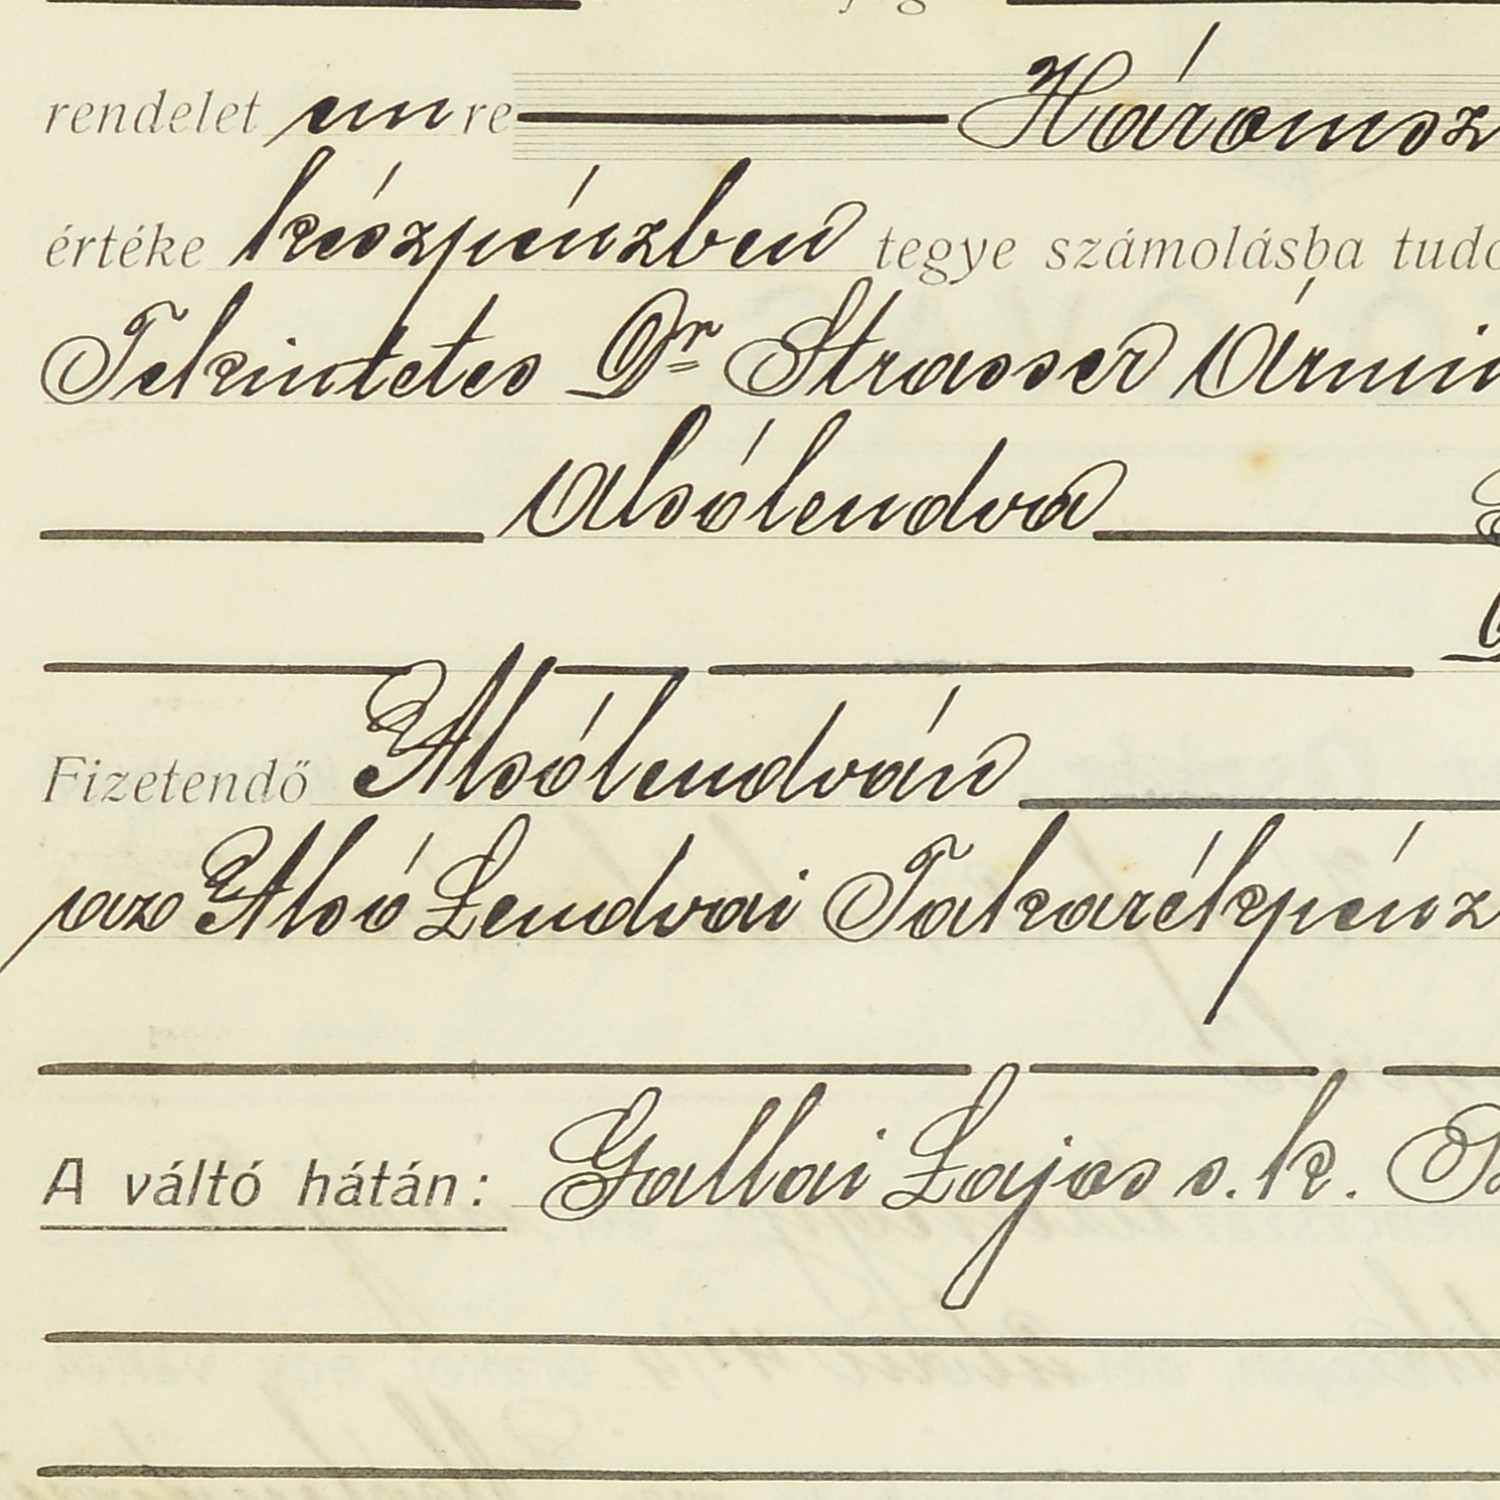 rendelet em re Háromsz
értéke készpénzben tegye számolásba tudo
Tekintetes Dr Strasser Ármin
Alsólendva
Fizetendő Alsólendván
az Alsó Lendvai Takarékpénz
A váltó hátán: Gallai Lajos s. k.